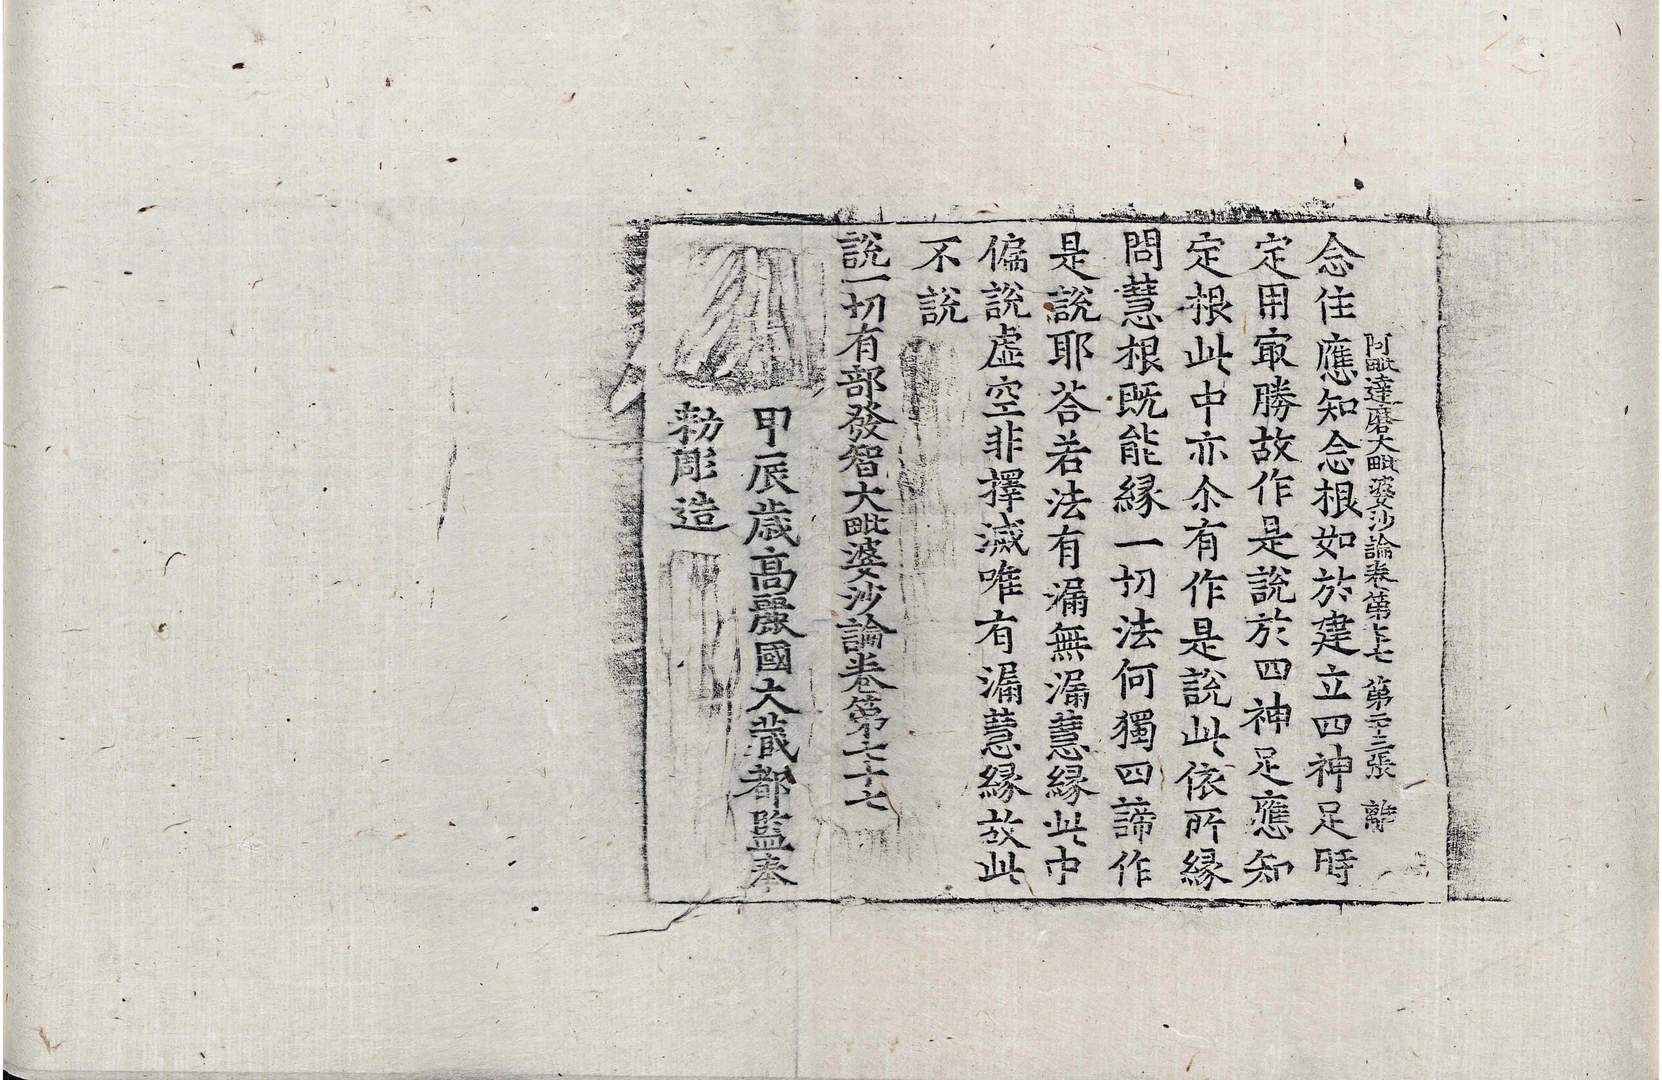 阿毗達磨大毗婆沙論卷第七十七 第二十三張 離
念住應知念根如於建立四神足時
定用㝡勝故作是說於四神足應知
定根此中亦尒有作是說此依所縁
問慧根既能縁一切法何獨四諦作
是說耶荅若法有漏無漏慧縁此中
偏說虛空非擇滅唯有漏慧縁故此
不說
說一切有部發智大毗婆沙論卷第七十七
甲辰歲高麗國大藏都監奉
勅彫造